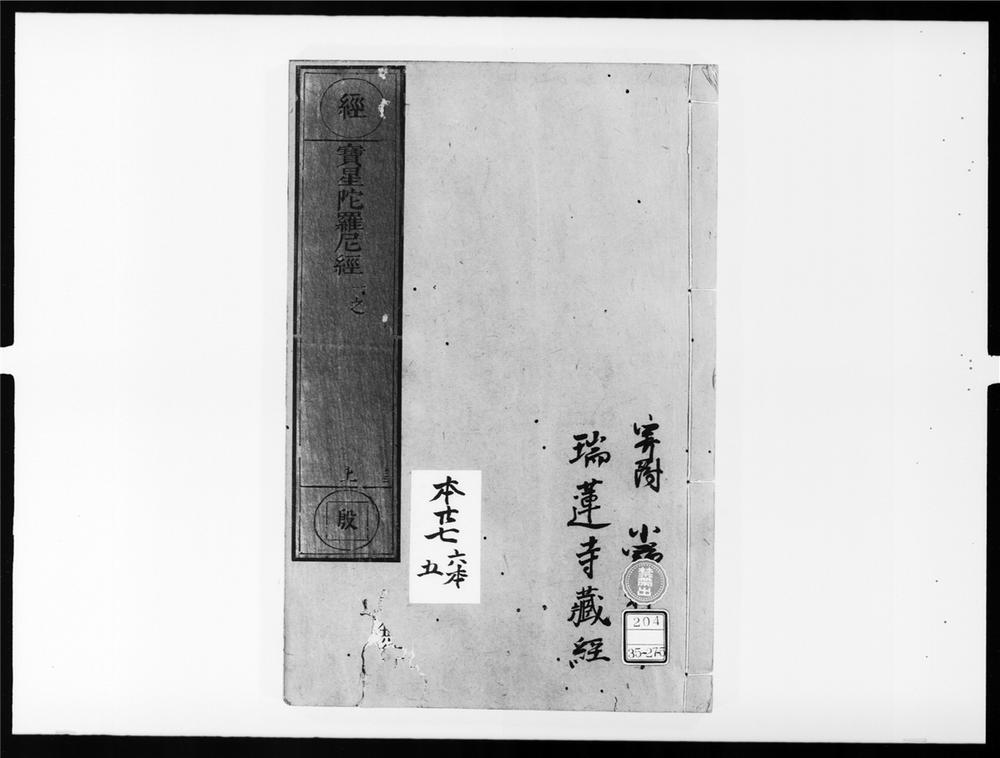 寄附 小
瑞蓮寺藏經
禁帶出
204
35-275
本廿七
六本
五
經
寶星陀羅尼經 之
上
殷